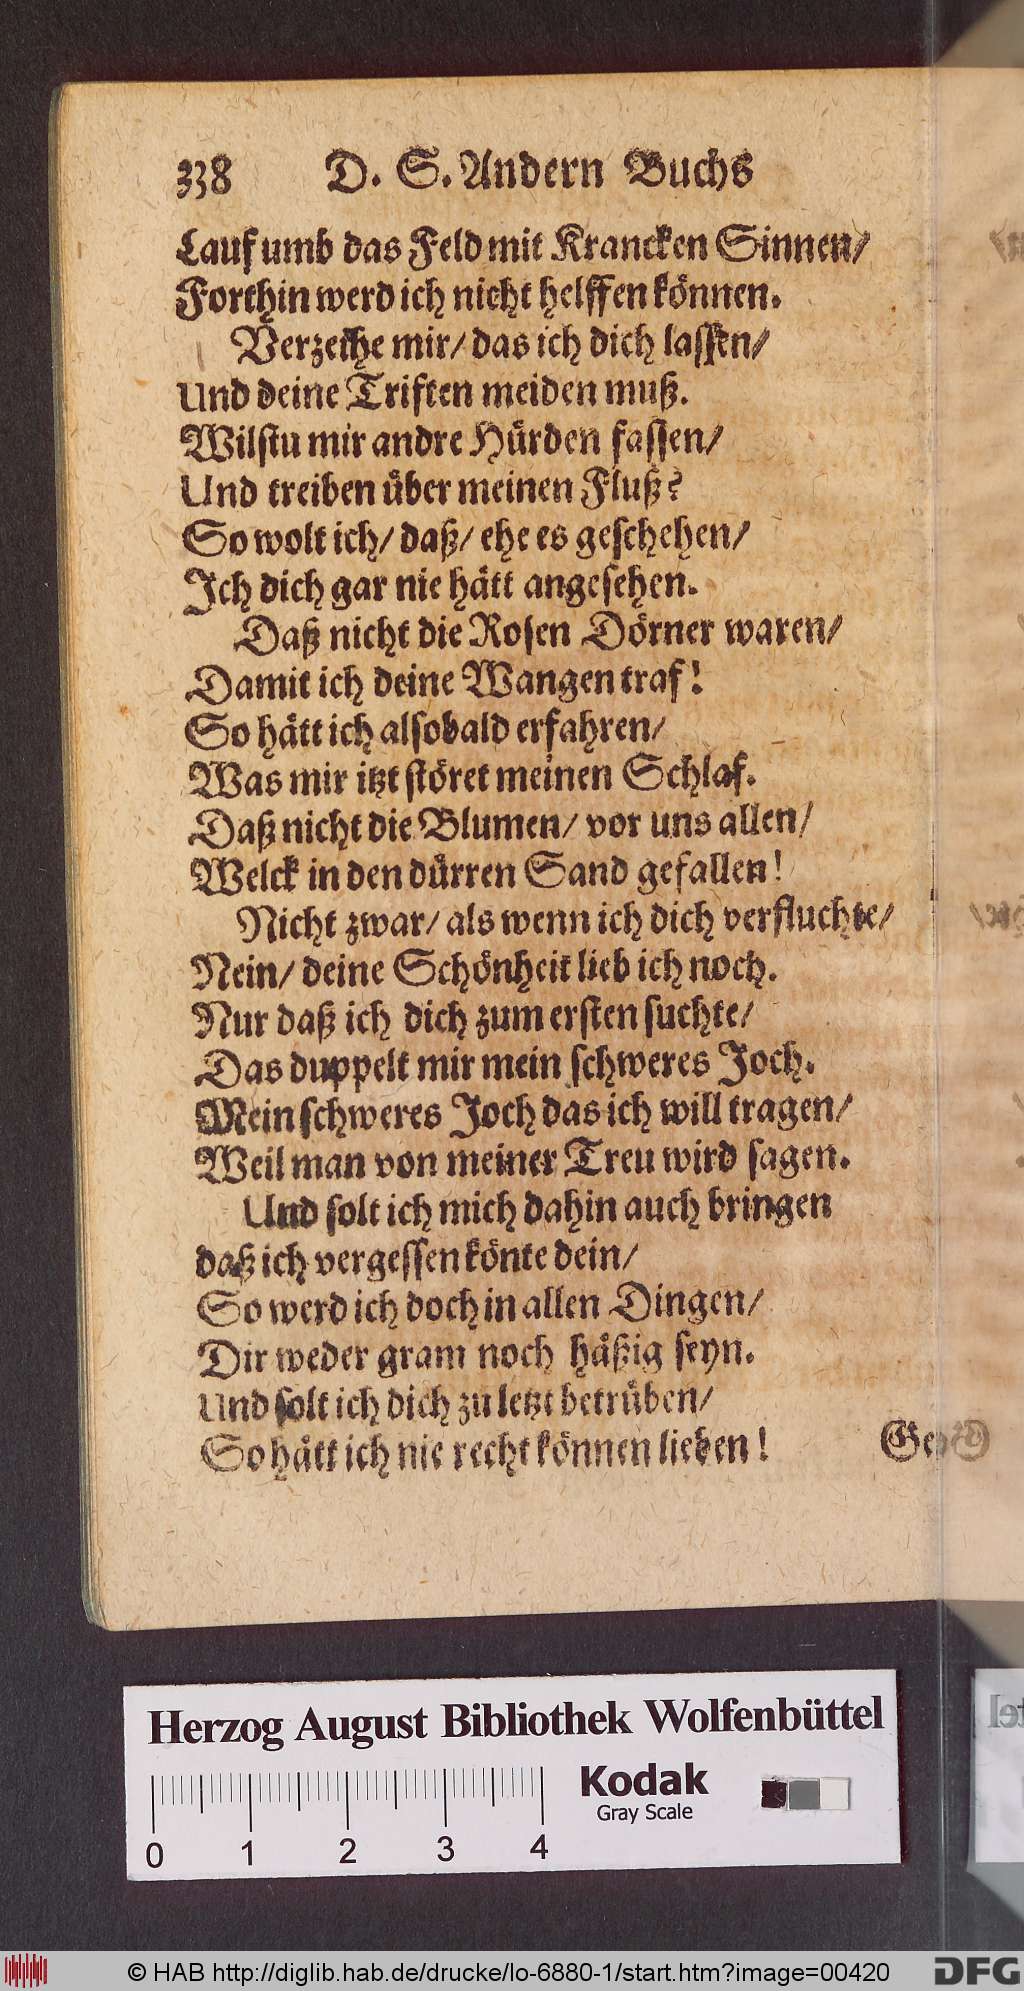 338 D. S. Andern Buchs
Lauf umb das Feld mit Krancken Sinnen/
Forthin werd ich nicht helffen können.
Verzeihe mir/ das ich dich lassen/
Und deine Triften meiden muß.
Wilstu mir andre Hürden fassen/
Und treiben über meinen Fluß?
So wolt ich/ daß/ ehe es geschehen/
Ich dich gar nie hätt angesehen.
Daß nicht die Rosen Dörner waren/
Damit ich deine Wangen traf!
So hätt ich alsobald erfahren/
Was mir itzt störet meinen Schlaf.
Daß nicht die Blumen/ vor uns allen/
Welck in den dürren Sand gefallen!
Nicht zwar/ als wenn ich dich verfluchte/
Nein/ deine Schönheit lieb ich noch.
Nur daß ich dich zum ersten suchte/
Das duppelt mir mein schweres Joch.
Mein schweres Joch das ich will tragen/
Weil man von meiner Treu wird sagen.
Und solt ich mich dahin auch bringen
daß ich vergessen könte dein/
So werd ich doch in allen Dingen/
Dir weder gram noch häßig seyn.
Und solt ich dich zu letzt betrüben/
So hätt ich nie recht können lieben!
Herzog August Bibliothek Wolfenbüttel
Kodak
Gray Scale
0 1 2 3 4
© HAB http://diglib.hab.de/drucke/lo-6880-1/start.htm?image=00420
DFG